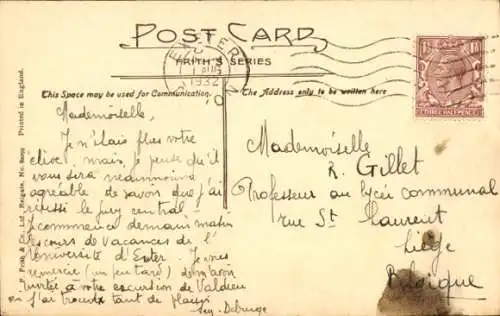 POST CARD
FRITH'S SERIES
EXETER
DEVON
1932
THREE HALF PENCE
This Space may be used for Communication.
The Address only to be written here
F. Frith & Co., Ltd. Reigate, No. Printed in England.
Mademoiselle,
Je n'étais plus votre
élève mais je pense qu'il
vous sera néanmoins
agréable de savoir que j'ai
réussi le jury central -
Je commence demain matin
les cours de vacances de l'
Université d'Exeter. Je vous
remercie (un peu tard) de m'avoir
invitée à votre excursion de Valdieu
j'ai trouvé tant de plaisir
Mademoiselle
R. Gillet
Professeur au lycée communal
rue St Laurent
Liège
Belgique